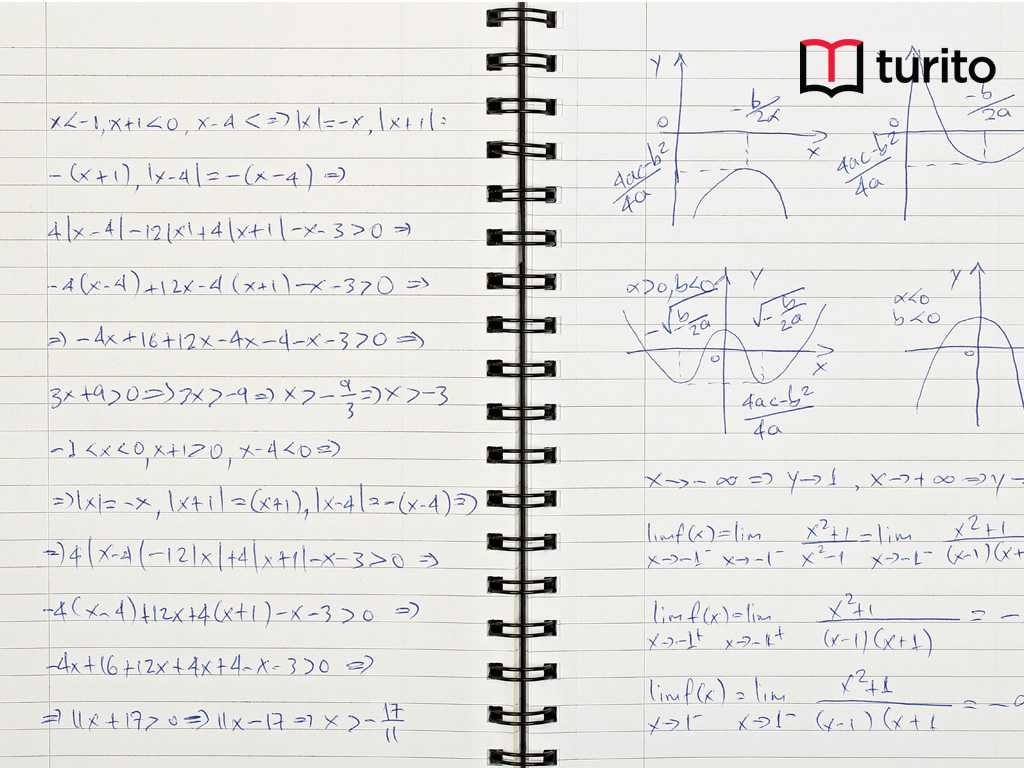 x<-1, x+1<0, x-4<=>|x|=-x, |x+1|=
-(x+1), |x-4|=-(x-4) =>
4|x-4|-12|x|+4|x+1|-x-3>0 =>
-4(x-4)+12x-4(x+1)-x-3>0 =>
=> -4x+16+12x-4x-4-x-3>0 =>
3x+9>0=>3x>-9=>x>-9/3=>x>-3
-1<x<0, x+1>0, x-4<0=>
=>|x|=-x, |x+1|=(x+1), |x-4|=-(x-4)=>
=>4|x-4|-12|x|+4|x+1|-x-3>0 =>
-4(x-4)+12x+4(x+1)-x-3>0 =>
-4x+16+12x+4x+4-x-3>0 =>
=> 11x+17>0=>11x-17=>x>-17/11
turito
y
-b/2a
0
x
4ac-b²/4a
-b/2a
0
4ac-b²/4a
a>0, b<0
y
-√-b/2a
√-b/2a
0
x
4ac-b²/4a
a<0
b<0
y
0
x->-∞ => y->1, x->+∞=>y-
limf(x)=lim x²+1/x²-1=lim x²+1/(x-1)(x+
x->-1⁻ x->-1⁻ x->-1⁻
limf(x)=lim x²+1/(x-1)(x+1) = -
x->-1⁺ x->-1⁺
limf(x)=lim x²+1/(x-1)(x+1 = -
x->1⁻ x->1⁻